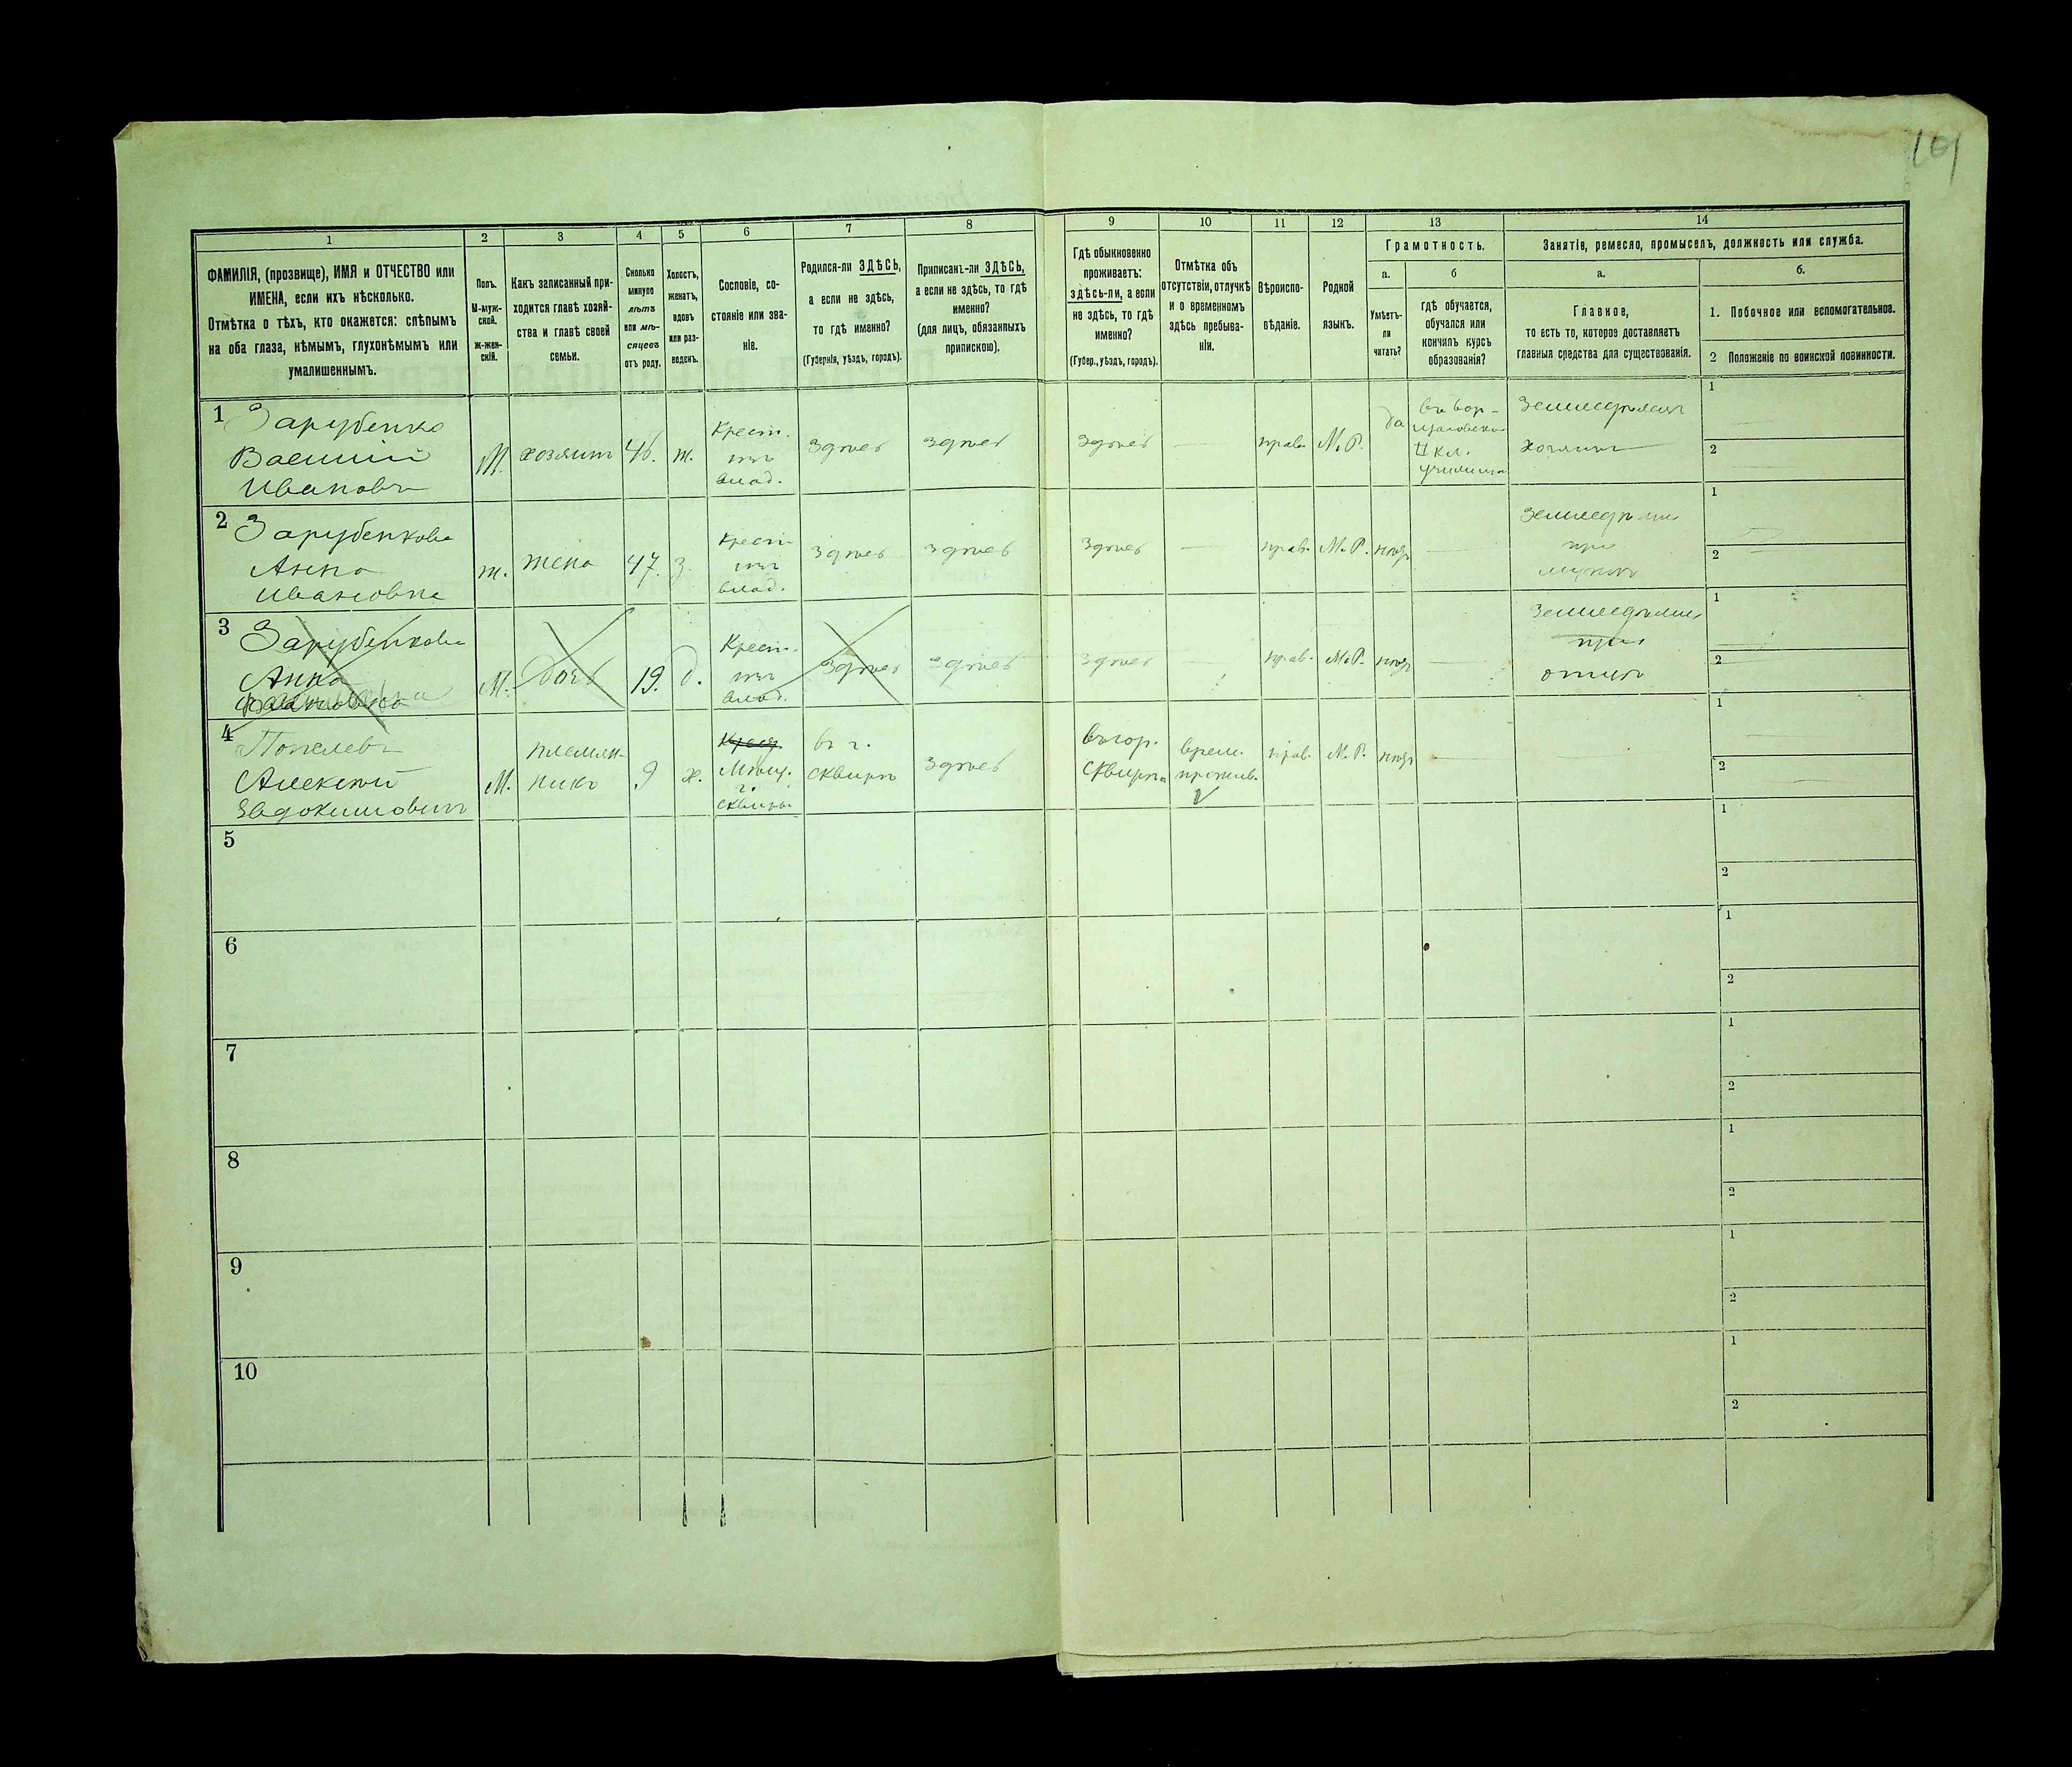 161
1
2
3
4
5
6
7
8
9
10
11
12
13
14
ФАМИЛІЯ, (прозвище), ИМЯ и ОТЧЕСТВО или
ИМЕНА, если ихъ нѣсколько.
Отмѣтка о тѣхъ, кто окажется: слѣпымъ
на оба глаза, нѣмымъ, глухонѣмымъ или
умалишеннымъ.
Полъ.
М-муж-
ской.
ж-жен-
скій.
Какъ записанный при-
ходится главѣ хозяй-
ства и главѣ своей
семьи.
Сколько
минуло
лѣтъ
или мѣ-
сяцевъ
отъ роду.
Холостъ,
женатъ,
вдовъ
или раз-
веденъ.
Сословіе, со-
стояніе или зва-
ніе.
Родился-ли ЗДѢСЬ,
а если не здѣсь,
то гдѣ именно?
(Губернія, уѣздъ, городъ).
Приписанъ-ли ЗДѢСЬ,
а если не здѣсь, то гдѣ
именно?
(для лицъ, обязанныхъ
припискою).
Гдѣ обыкновенно
проживаетъ:
здѣсь-ли, а если
не здѣсь, то гдѣ
именно?
(Губер., уѣздъ, городъ).
Отмѣтка объ
отсутствіи, отлучкѣ
и о временномъ
здѣсь пребыва-
ніи.
Вѣроиспо-
вѣданіе.
Родной
языкъ.
Грамотность.
а.
б
Умѣетъ-
ли
читать?
гдѣ обучается,
обучался или
кончилъ курсъ
образованія?
Занятіе, ремесло, промыселъ, должность или служба.
а.
б.
Главное,
то есть то, которое доставляетъ
главныя средства для существованія.
1. Побочное или вспомогательное.
2 Положеніе по воинской повинности.
1
Зарубенко
Василій
Ивановъ
М.
хозяинъ
46.
ж.
Крест.
изъ
влад.
здѣсь
здѣсь
здѣсь
—
прав.
М.Р.
да
II кл.
училищѣ
Земледѣлецъ
хозяинъ
1
2
2
Зарубенкова
Анна
Ивановна
ж.
жена
47.
з.
Крест.
изъ
влад.
здѣсь
здѣсь
здѣсь
—
прав.
М.Р.
нѣтъ
—
Земледѣліе
при
мужѣ
1
2
3
Зарубенкова
Анна
М.
дочь
19.
д.
Крест.
изъ
влад.
здѣсь
здѣсь
здѣсь
—
прав.
М.Р.
нѣтъ
Земледѣліе
при
отцѣ
1
2
4
Алексѣй
Евдокимовичъ
М.
племян-
никъ
9
х.
Крест.
Мѣщ.
г.
Сквиры
въ г.
Сквирѣ
здѣсь
въ гор.
Сквирѣ
врем.
прожив.
прав.
М.Р.
нѣтъ
—
—
1
2
5
1
2
6
1
2
7
1
2
8
1
2
9
1
2
10
1
2